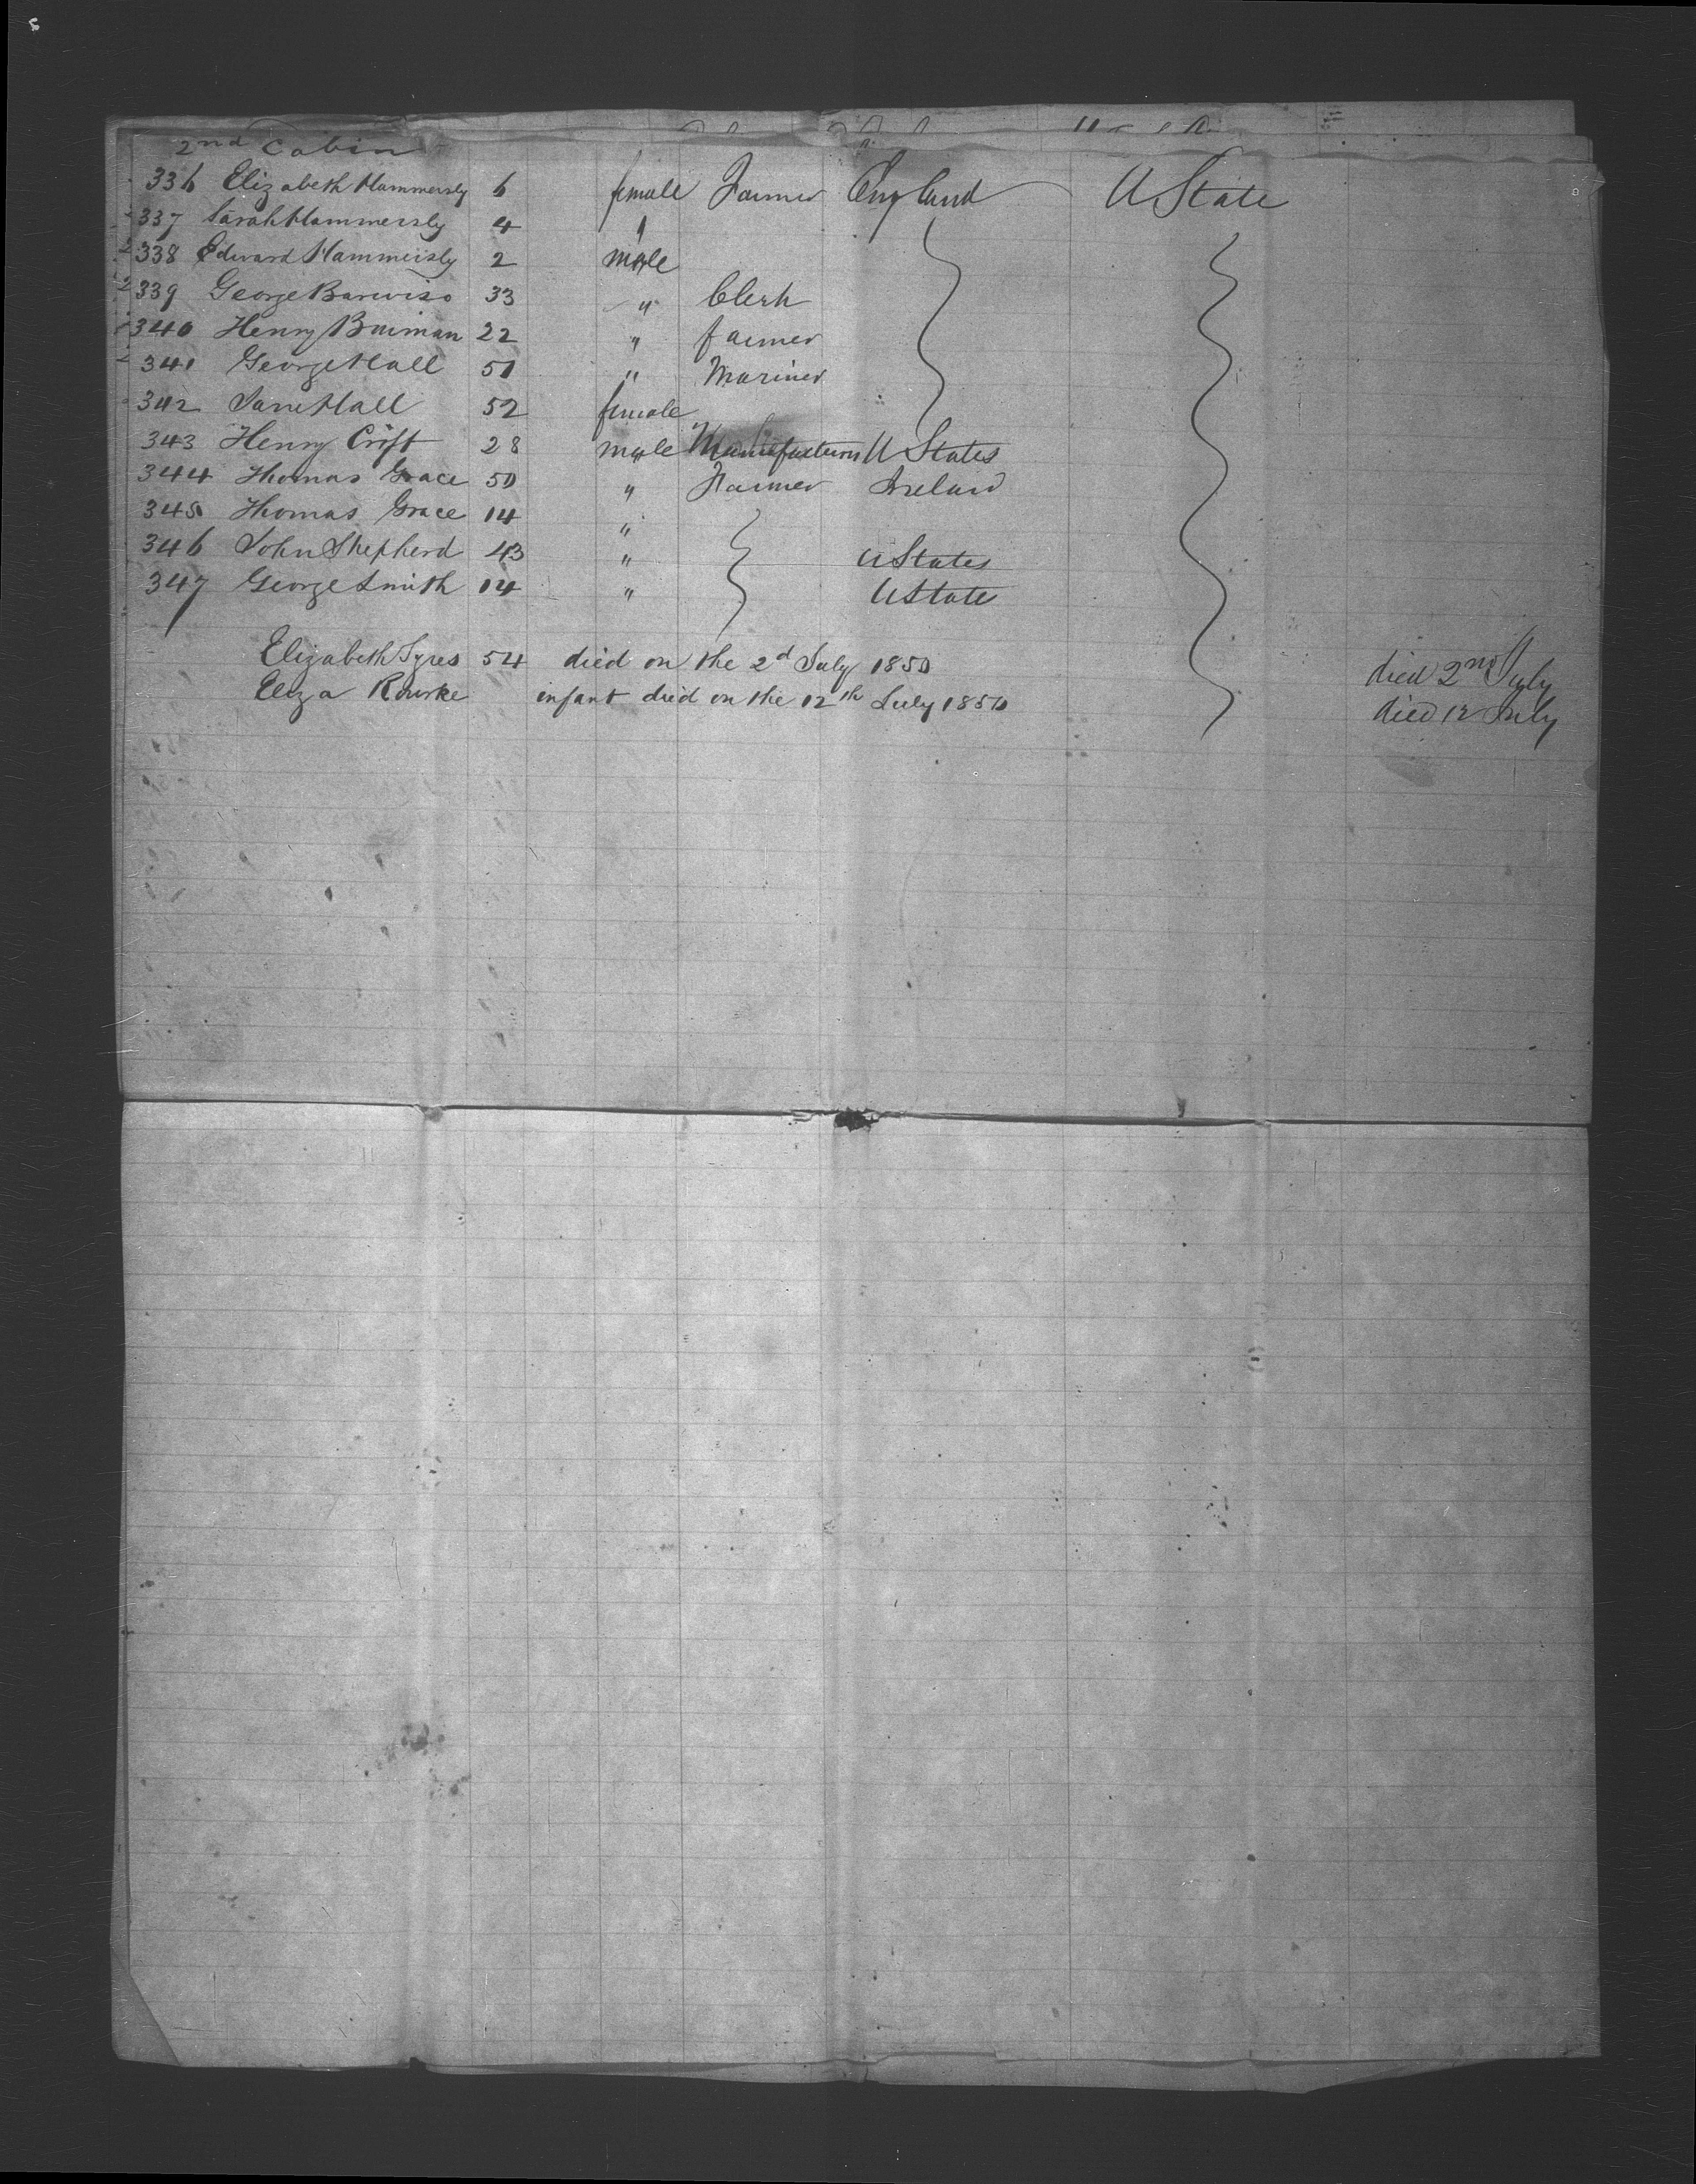 2nd Cabin
336 Elizabeth Hammersly 6 female Farmer England U State
337 Sarah Hammersly 4 "
338 Edward Hammersly 2 male
339 George Barwiso 33 " Clerk
340 Henry 22 " farmer
341 George Hall 51 " Mariner
342 Jane Hall 52 female
343 Henry Crift 28 male Manufacturer U States
344 Thomas Grace 50 " Farmer Ireland
345 Thomas Grace 14 "
346 John Shepherd 43 " U States
347 George Smith 14 " U State
Elizabeth Syres 54 died on the 2d July 1850 died 2nd July
Eliza Rourke infant died on the 12th July 1850 died 12 July